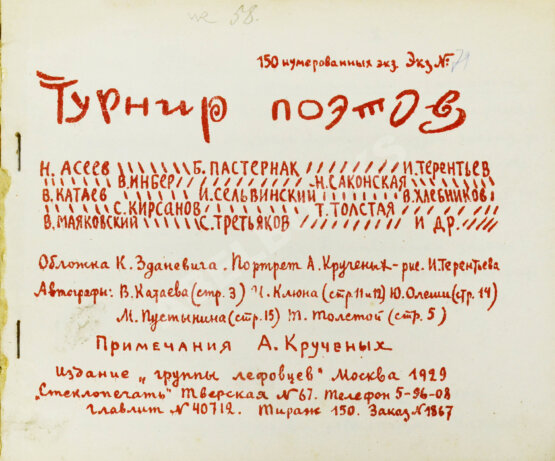 № 58.
150 нумерованных экз. Экз № 71
Турнир поэтов
Н. АСЕЕВ Б. ПАСТЕРНАК И. ТЕРЕНТЬЕВ
В. ИНБЕР Н. САКОНСКАЯ
В. КАТАЕВ И. СЕЛЬВИНСКИЙ В. ХЛЕБНИКОВ
С. КИРСАНОВ Т. ТОЛСТАЯ
В. МАЯКОВСКИЙ С. ТРЕТЬЯКОВ И ДР.
Обложка К. Зданевича. Портрет А. Крученых - рис. И. Терентьева
Автографы: В. Катаева (стр. 3) И. Клюна (стр 11 и 12) Ю. Олеши (стр. 14)
М. Пустынина (стр. 15) Т. Толстой (стр. 5)
Примечания А. Крученых
Издание „группы лефовцев" Москва 1929
„Стеклопечать" Тверская № 67. Телефон 5-96-08
Главлит № 40712. Тираж 150. Заказ № 1867